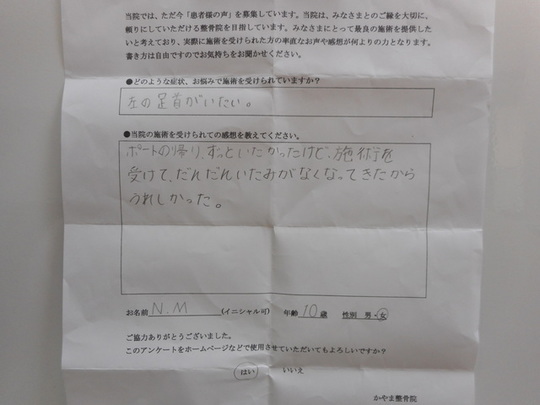 当院では、ただ今「患者様の声」を募集しています。当院は、みなさまとのご縁を大切に、
頼りにしていただける整骨院を目指しています。みなさまにとって最良の施術を提供した
いと考えており、実際に施術を受けられた方の率直なお声や感想が何よりの力となります。
書き方は自由ですのでお気持ちをお聞かせください。
●どのような症状、お悩みで施術を受けられていますか?
左の足首がいたい。
●当院の施術を受けられての感想を教えてください。
ポートの帰り、ずっといたかったけど、施術を
受けて、だんだんいたみがなくなってきたから
うれしかった。
お名前 N.M (イニシャル可) 年齢 10 歳 性別 男・女
ご協力ありがとうございました。
このアンケートをホームページなどで使用させていただいてもよろしいですか?
はい いいえ
かやま整骨院